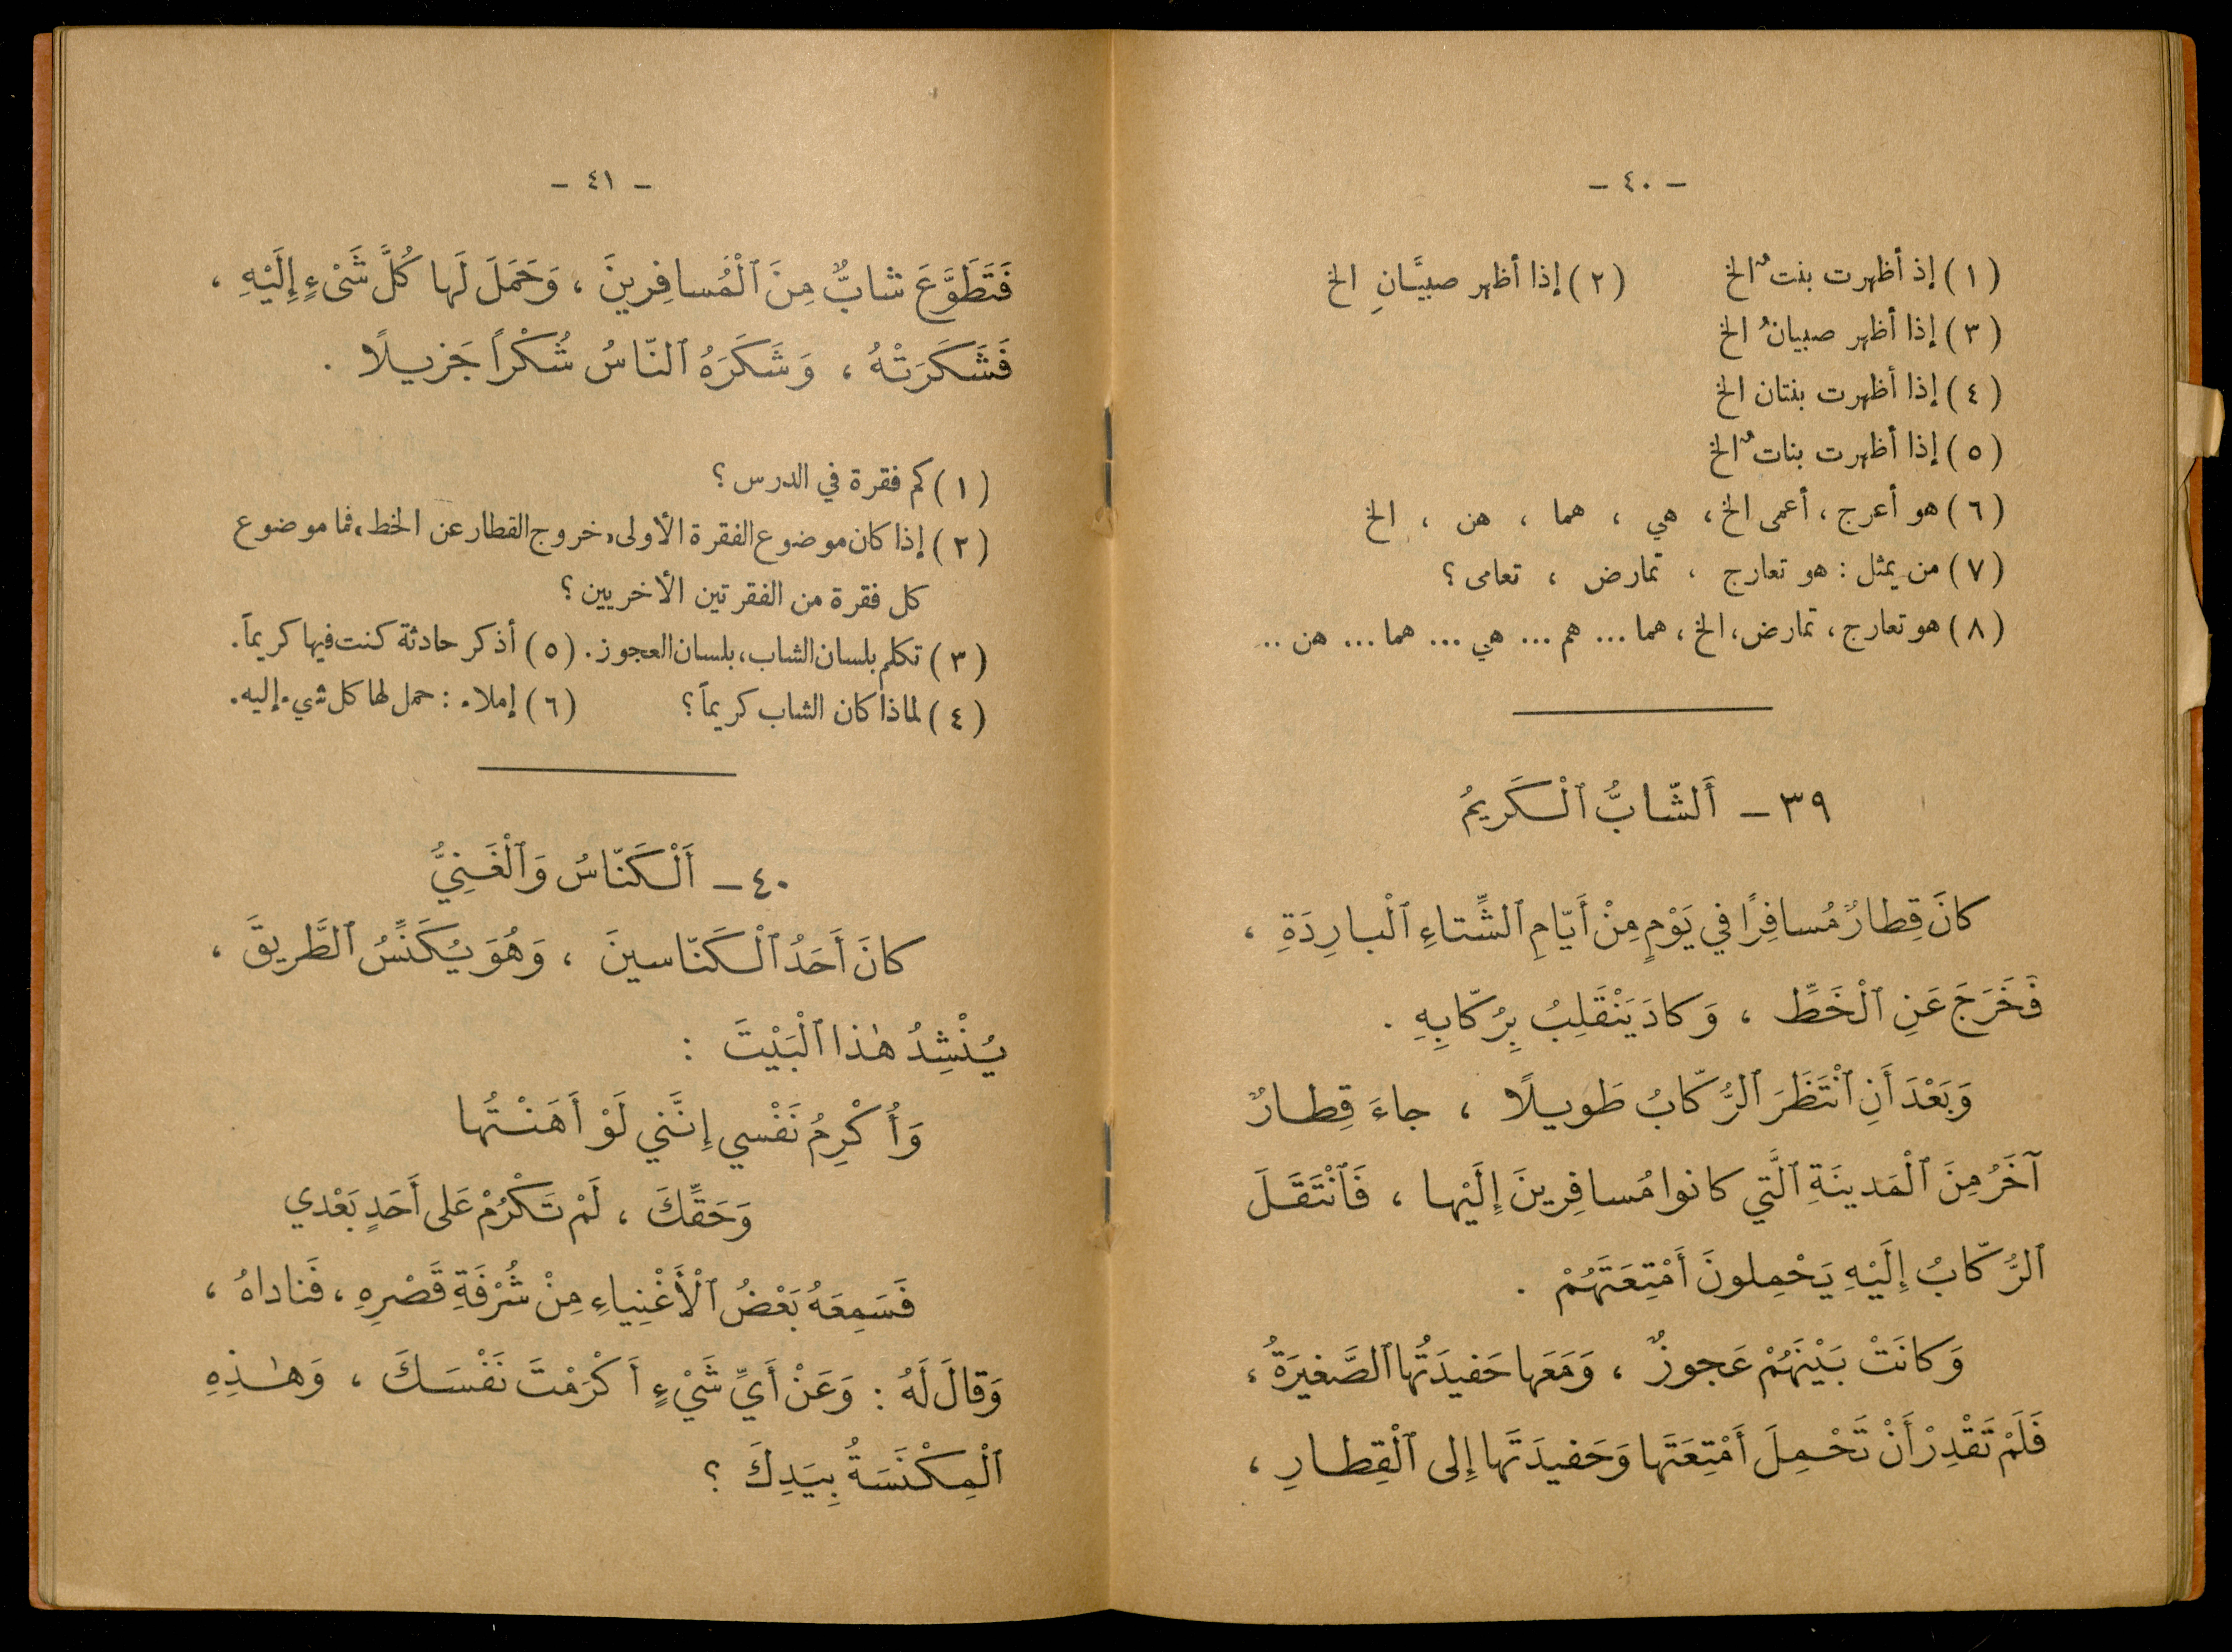 - ٤٠ -
(١) إذ أظهرت بنتٌ الخ (٢) إذا أظهر صبيَّانِ الخ
(٣) إذا أظهر صبيانٌ الخ
(٤) إذا أظهرت بنتان الخ
(٥) إذا أظهرت بناتٌ الخ
(٦) هو أعرج، أعمى الخ، هي ، هما ، هن ، الخ
(٧) من يمثل : هو تعارج ، تمارض ، تعامى ؟
(٨) هو تعارج، تمارض، الخ، هما ... هم ... هي ... هما ... هن ..
٣٩ - أَلشّابُّ ٱلْكَريمُ
كانَ قِطارٌ مُسافِرًا في يَوْمٍ مِنْ أَيّامِ ٱلشِّتاءِ ٱلْبارِدَةِ ،
فَخَرَجَ عَنِ ٱلْخَطِّ ، وَكادَ يَنْقَلِبُ بِرُكّابِهِ .
وَبَعْدَ أَنِ ٱنْتَظَرَ ٱلرُّكّابُ طَويلًا ، جاءَ قِطارٌ
آخَرُ مِنَ ٱلْمَدينَةِ ٱلَّتي كانوا مُسافِرينَ إِلَيْها ، فَٱنْتَقَلَ
ٱلرُّكّابُ إِلَيْهِ يَحْمِلونَ أَمْتِعَتَهُمْ .
وَكانَتْ بَيْنَهُمْ عَجوزٌ ، وَمَعَها حَفيدَتُها ٱلصَّغيرَةُ ،
فَلَمْ تَقْدِرْ أَنْ تَحْمِلَ أَمْتِعَتَها وَحَفيدَتَها إِلى ٱلْقِطارِ ،
- ٤١ -
فَتَطَوَّعَ شابٌّ مِنَ ٱلْمُسافِرينَ ، وَحَمَلَ لَها كُلَّ شَىْءٍ إِلَيْهِ ،
فَشَكَرَتْهُ ، وَشَكَرَهُ ٱلنّاسُ شُكْرًا جَزيلًا .
(١) كم فقرة في الدرس ؟
(٢) إذا كان موضوع الفقرة الأولى، خروج القطار عن الخط، فما موضوع
كل فقرة من الفقرتين الأخريين ؟
(٣) تكلم بلسان الشاب، بلسان العجوز. (٥) أذكر حادثة كنت فيها كريماً.
(٤) لماذا كان الشاب كريماً ؟ (٦) إملاء : حمل لها كل شيء إليه.
٤٠ - أَلْكَنّاسُ وَٱلْغَنِيُّ
كانَ أَحَدُ ٱلْكَنّاسينَ ، وَهُوَ يُكَنِّسُ ٱلطَّريقَ ،
يُنْشِدُ هٰذا ٱلْبَيْتَ :
وَأُكْرِمُ نَفْسي إِنَّني لَوْ أَهَنْتُها
وَحَقِّكَ ، لَمْ تَكْرُمْ عَلى أَحَدٍ بَعْدي
فَسَمِعَهُ بَعْضُ ٱلْأَغْنِياءِ مِنْ شُرْفَةِ قَصْرِهِ ، فَناداهُ ،
وَقالَ لَهُ : وَعَنْ أَيِّ شَيْءٍ أَكْرَمْتَ نَفْسَكَ ، وَهٰذِهِ
ٱلْمِكْنَسَةُ بِيَدِكَ ؟